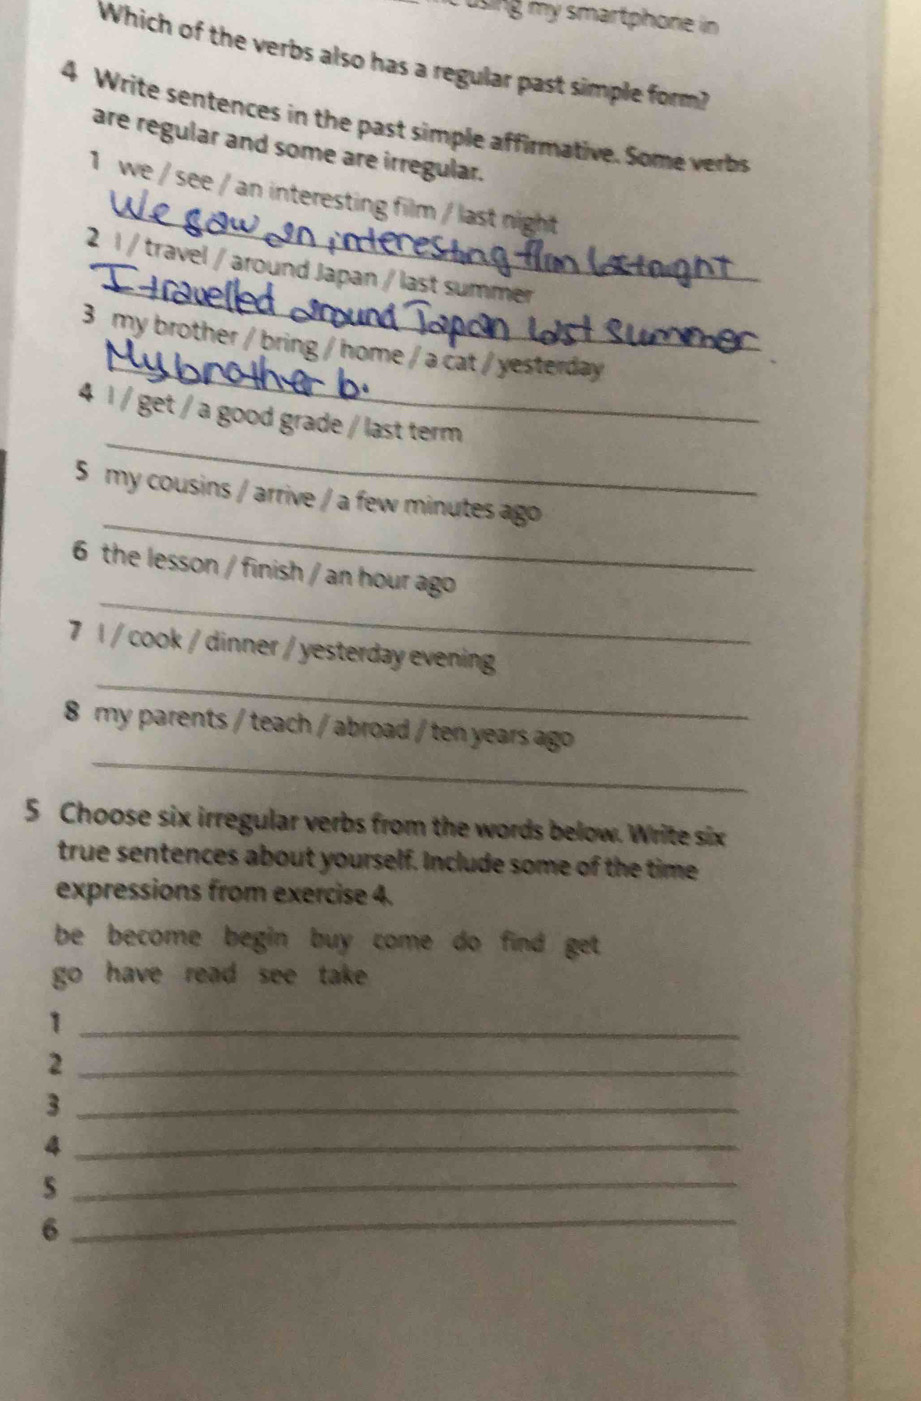 using my smartphone in
Which of the verbs also has a regular past simple form?
4 Write sentences in the past simple affirmative. Some verbs
are regular and some are irregular.
1 we / see / an interesting film / last night
We saw an interesting film last night
2 I / travel / around Japan / last summer
I travelled around Japan last summer.
3 my brother / bring / home / a cat / yesterday
My brother b.
4 I / get / a good grade / last term
5 my cousins / arrive / a few minutes ago
6 the lesson / finish / an hour ago
7 I / cook / dinner / yesterday evening
8 my parents / teach / abroad / ten years ago
5 Choose six irregular verbs from the words below. Write six
true sentences about yourself. Include some of the time
expressions from exercise 4.
be become begin buy come do find get
go have read see take
1
2
3
4
5
6